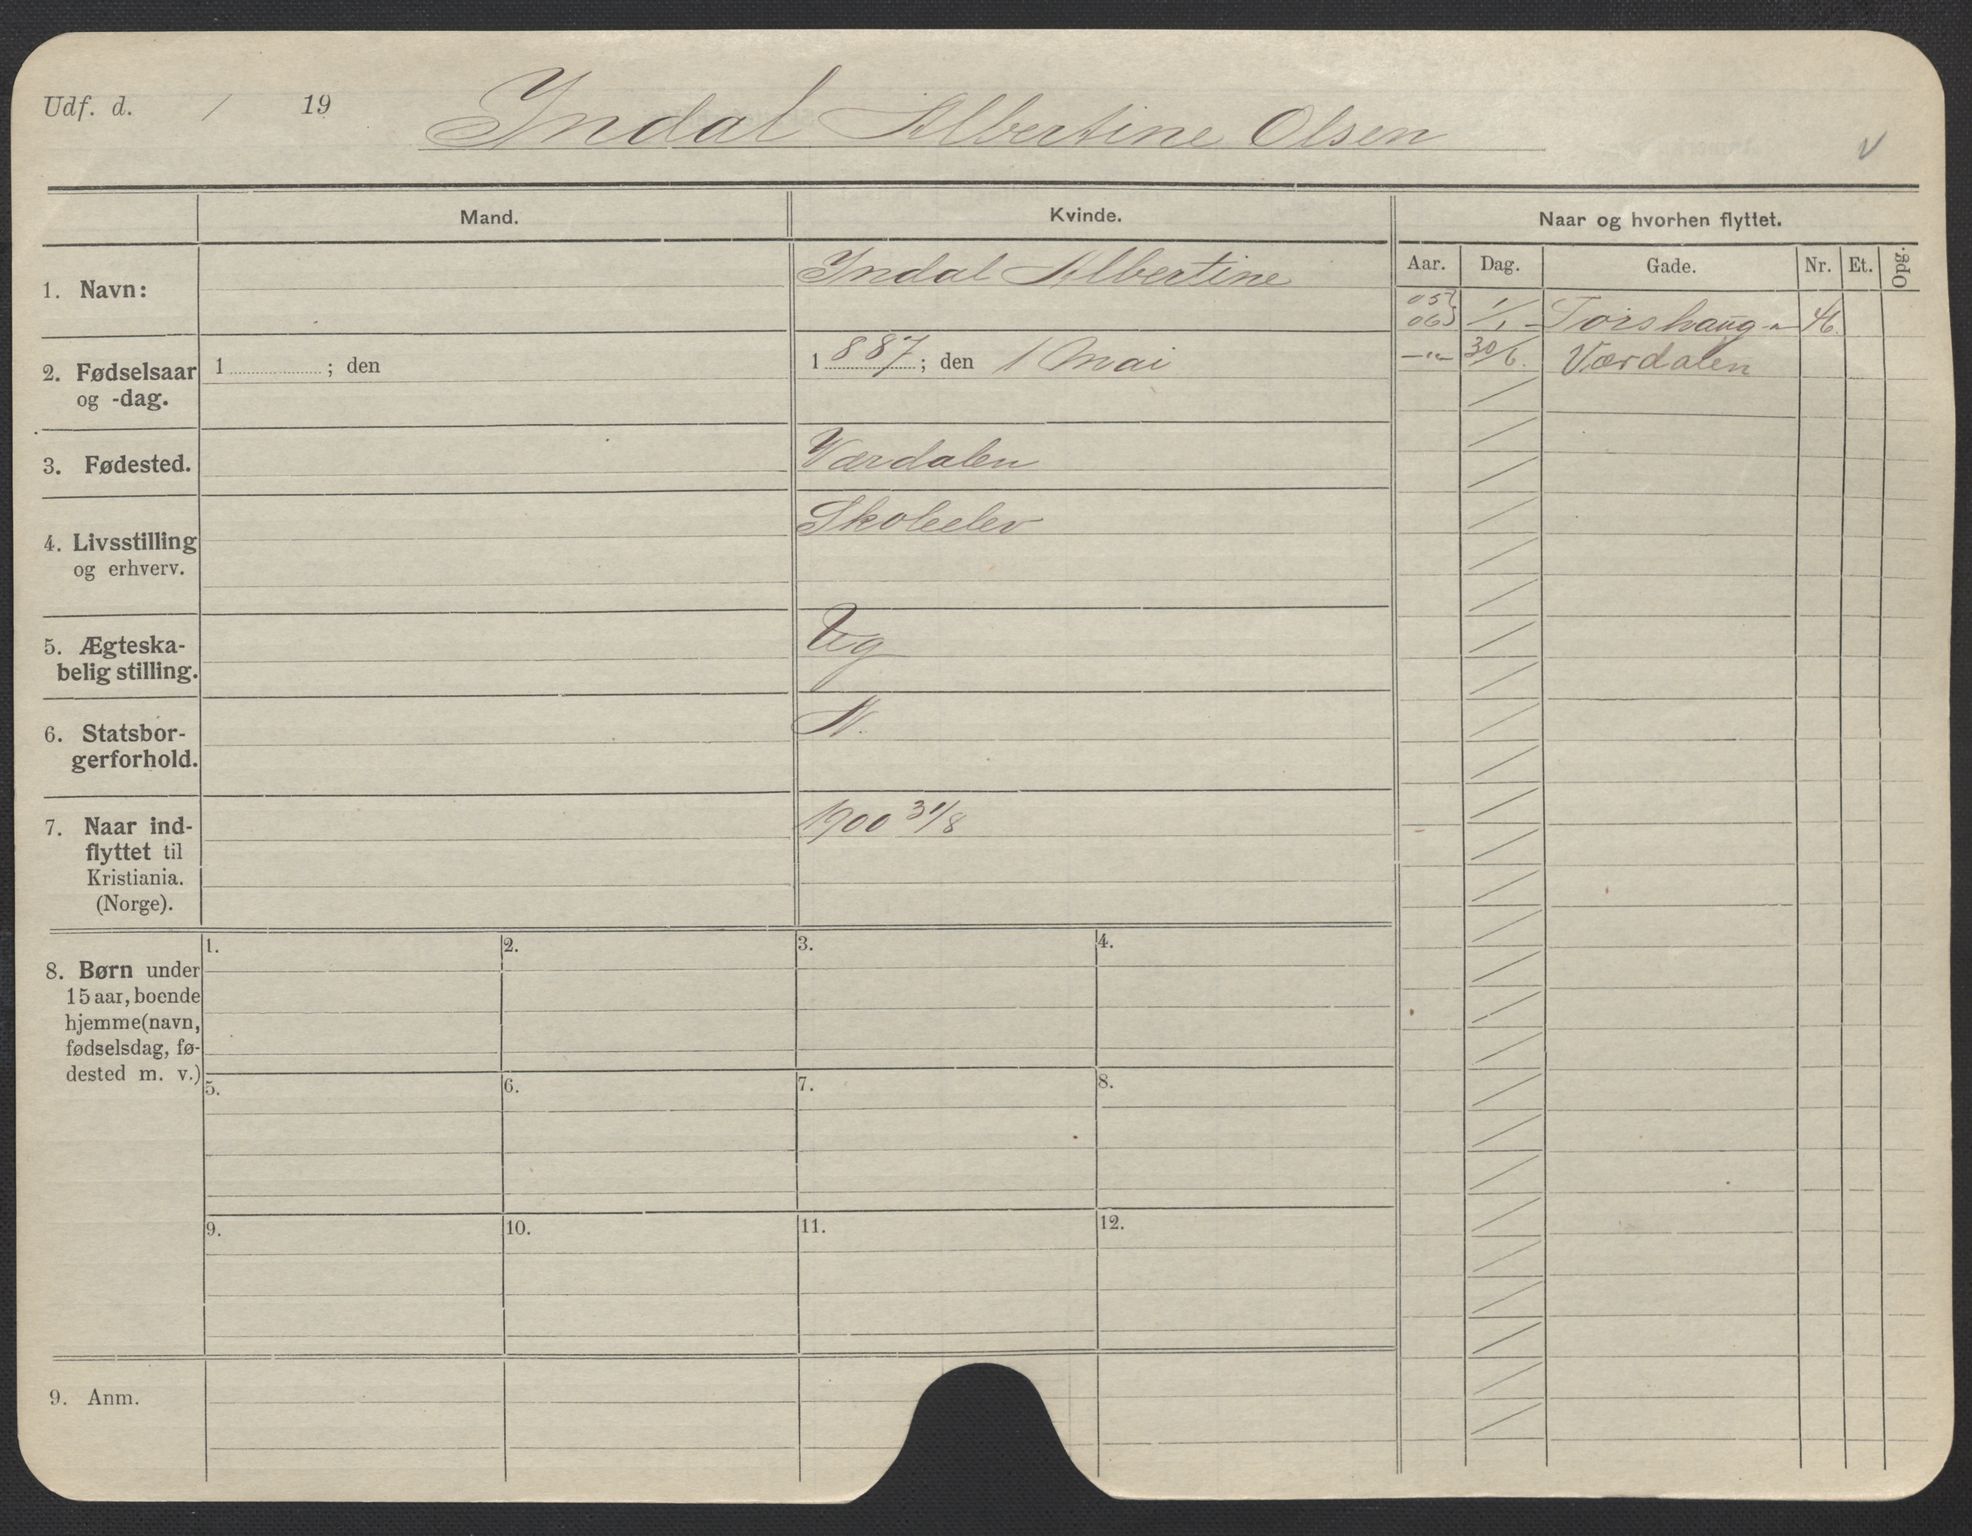 Udf. d. / 19 Indal Albertine Olsen V
Mand. Kvinde. Naar og hvorhen flyttet.
Aar. Dag. Gade. Nr. Et. Opg.
1. Navn: Indal Albertine
05 } 1/1 Torshaug
06 }
—"— 30/6. Værdalen
2. Fødselsaar
og -dag.
1 ; den
1 887 ; den 1 Mai
3. Fødested. Værdalen
4. Livsstilling
og erhverv.
Skoleelev
5. Ægteska-
belig stilling.
Ug
6. Statsbor-
gerforhold.
N.
7. Naar ind-
flyttet til
Kristiania.
(Norge).
1900 31/8
8. Børn under
15 aar, boende
hjemme (navn,
fødselsdag, fø-
dested m. v.)
1. 2. 3. 4.
5. 6. 7. 8.
9. 10. 11. 12.
9. Anm.